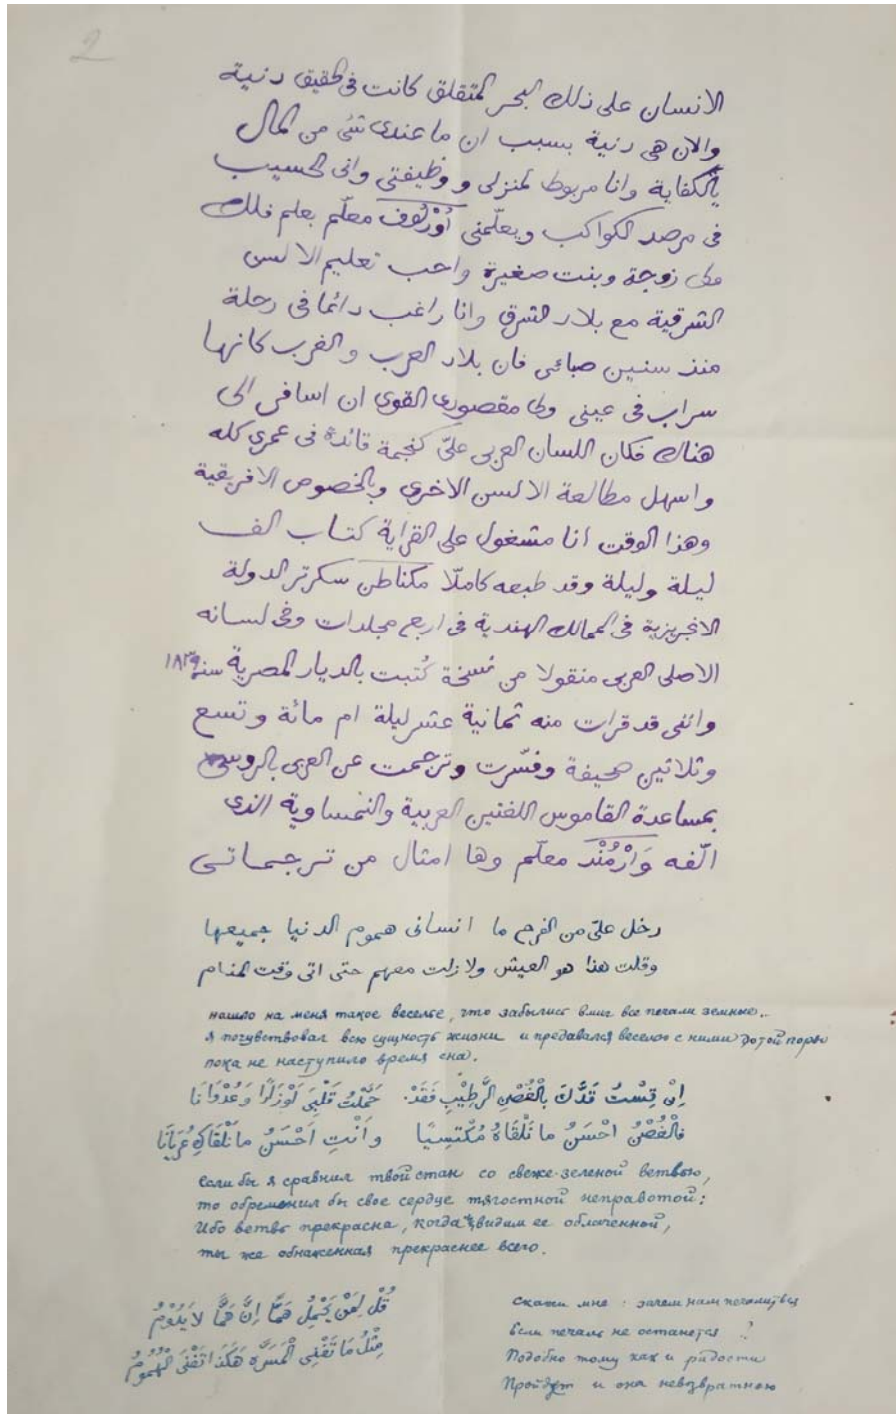 2
الانسان على ذلك البحر المتقلق كانت فى الحقيق دنية
والان هى دنية بسبب ان ما عندى شئ من المال
بالكفاية وانا مربوط لمنزلى و وظيفتى وانى الحسيب
فى مرصد الكواكب ويعلّمنى اُوْرْلُوف معلّم بعلم فلك
ولى زوجة وبنت صغيرة واحب تعليم الالسن
الشرقية مع بلاد الشرق وانا راغب دائما فى رحلة
منذ سنين صبائى فان بلاد العرب والغرب كانها
سراب فى عينى ولى مقصورى القوى ان اسافر الى
هناك فكان اللسان العربى علىّ كنجمة قائدة فى عمرى كله
واسهل مطالعة الالسن الاخرى وبالخصوص الافريقية
وهذا الوقت انا مشغول على القراية كتاب الف
ليلة وليلة وقد طبعه كاملًا مكناطن سكرتر الدولة
الانجريزية فى الممالك الهندية فى اربع مجلدات وفى لسانه
الاصلى العربى منقولا من نسخة كُتبت بالديار المصرية سنة ١٨٣٩
واننى قد قرات منه ثمانية عشر ليلة ام مائة وتسع
وثلاثين صحيفة وفسّرت وترجمت عن العربى بالروسى
بمساعدة القاموس اللغتين العربية والنمساوية الذى
الّفه وَارْمُنْد معلّم وها امثال من ترجماتى
دخل علىّ من الفرح ما انسانى هموم الدنيا جميعها
وقلت هذا هو العيش ولا زلت معهم حتى اتى وقت المنام
нашло на меня такое веселье, что забылись вмиг все печали земные..
я почувствовал всю сущность жизни и предавался веселью с ними до той поры
пока не наступило время сна.
اِنْ قِسْتُ قَدَّكَ بِالْغُصْنِ الرَّطِيْبِ فَقَدْ حَمَّلْتُ قَلْبِى وَعُدْوَانَا
فَالْغُصْنُ اَحْسَنُ ما تَلْقَاهُ مُكْتَسِيًا وَاَنْتِ اَحْسَنُ ما تَلْقَاكِ عُرْيَانَا
если бы я сравнил твой стан со свеже-зеленой ветвью,
то обременил бы свое сердце тягостной неправотой:
Ибо ветвь прекрасна, когда видим ее облаченной,
ты же обнаженная прекраснее всего.
قُلْ لِمَنْ يَحْمِلُ هَمًّا اِنَّ هَمًّا لَا يَدُوْمُ
مِثْلُ مَا تَفْنِى الْمَسَرَّه هَكَذَا تَفْنَى الْهُمُوْمُ
Скажи мне: зачем нам печалиться
Если печаль не останется ?
Подобно тому как и радости
Пройдет и она невозвратною